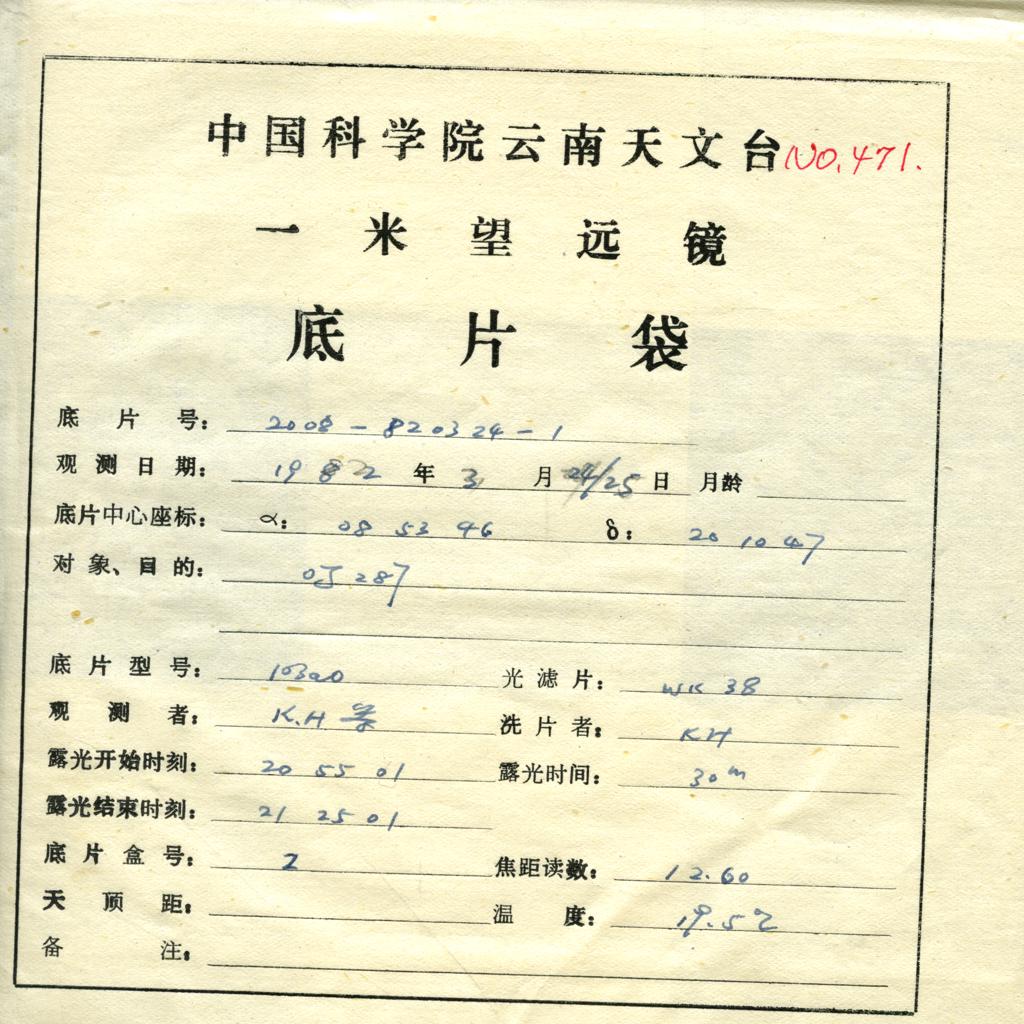 中国科学院云南天文台 NO.471.
一米望远镜
底片袋
底片号: 2008-820324-1
观测日期: 1982年3月24/25日 月龄
底片中心座标: α: 08 53 46 δ: 20 10 47
对象、目的: OJ 287
底片型号: 103aO 光滤片: WK 38
观测者: K.H 等 洗片者: KH
露光开始时刻: 20 55 01 露光时间: 30m
露光结束时刻: 21 25 01
底片盒号: 2 焦距读数: 12.60
天顶距: 温度: 19.5℃
备注: